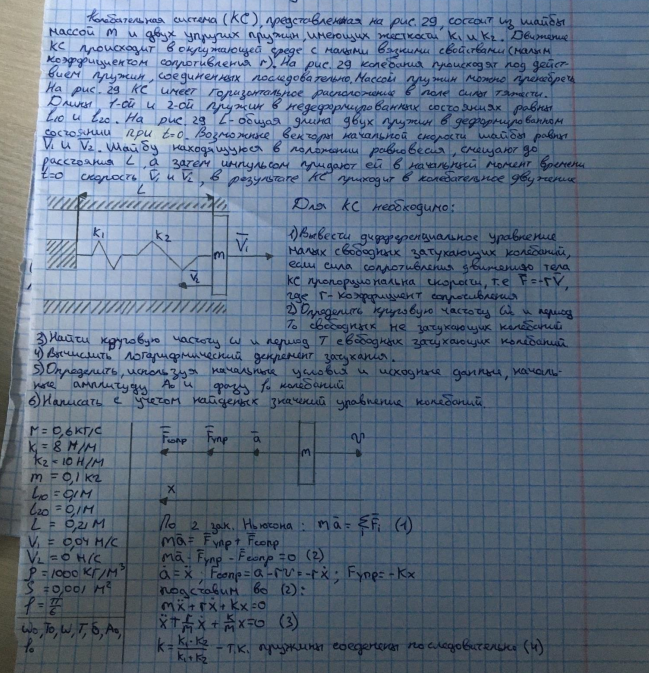 Колебательная система (КС), представленная на рис. 29, состоит из шайбы
массой m и двух упругих пружин, имеющих жесткости k1 и k2. Движение
КС происходит в окружающей среде с малыми вязкими свойствами (малым
коэффициентом сопротивления r). На рис. 29 колебания происходят под дейст-
вием пружин, соединенных последовательно. Массой пружин можно пренебречь
На рис. 29 КС имеет горизонтальное расположение в поле силы тяжести.
Длины 1-ой и 2-ой пружин в недеформированных состояниях равны
L10 и L20. На рис. 29 L-общая длина двух пружин в деформированном
состоянии при t=0. Возможные векторы начальной скорости шайбы равны
V̅1 и V̅2. Шайбу находящуюся в положении равновесия, смещают до
расстояния L, а затем импульсом придают ей в начальный момент времени
t=0 скорость V̅1 и V̅2, в результате КС приходит в колебательное движение
L
k1
k2
m
V̅1
V̅2
Для КС необходимо:
1) Вывести дифференциальное уравнение
малых свободных затухающих колебаний,
если сила сопротивления движению тела
КС пропорциональна скорости, т.е F̅=-rV̅,
где r- коэффициент сопротивления
2) Определить круговую частоту ω0 и период
T0 свободных не затухающих колебаний
3) Найти круговую частоту ω и период T свободных затухающих колебаний
4) Вычислить логарифмический декремент затухания.
5) Определить, используя начальные условия и исходные данные, началь-
ные амплитуду A0 и фазу φ0 колебаний
6) Написать с учетом найденых значний уравнение колебаний.
r = 0,6 кг/с
k1 = 8 Н/м
k2 = 10 Н/м
m = 0,1 кг
L10 = 0,1м
L20 = 0,1м
L = 0,21 м
V1 = 0,04 м/с
V2 = 0 м/с
ρ = 1000 кг/м³
S = 0,001 м²
φ = π/6
ω0, T0, ω, T, δ, A0,
φ0
F̅сопр
F̅упр
a̅
m
v̅
x
По 2 зак. Ньютона: ma̅ = ΣF̅i (1)
ma̅ = F̅упр + F̅сопр
ma̅ - F̅упр - F̅сопр = 0 (2)
a̅ = ẍ, Fсопр = a -rv = -rẋ; Fупр = -kx
подставим во (2):
mẍ + rẋ + kx = 0
ẍ + r/m ẋ + k/m x = 0 (3)
k = k1·k2/k1+k2 - т.к. пружины соеденены последовательно (4)